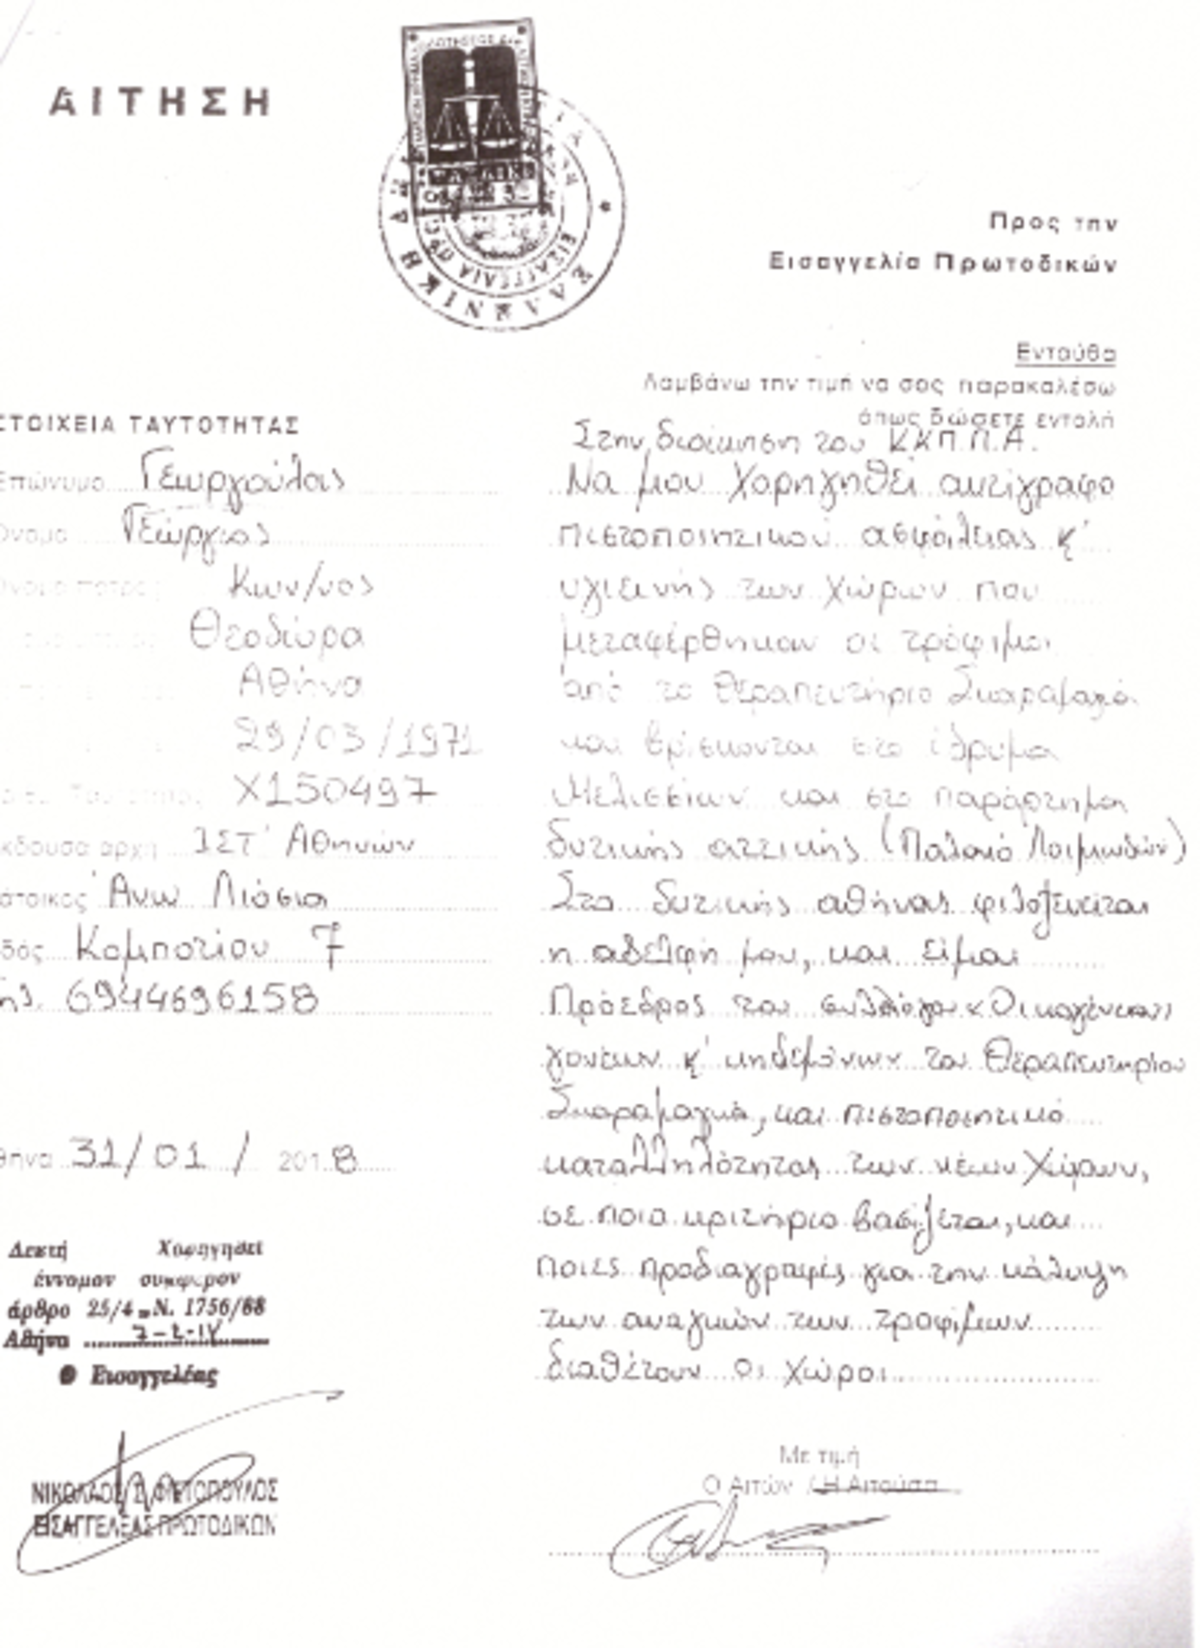 ΑΙΤΗΣΗ
ΕΛΛΗΝΙΚΗ
ΕΙΣΑΓΓΕΛΙΑ
Προς την
Εισαγγελία Πρωτοδικών
Ενταύθα
Λαμβάνω την τιμή να σας παρακαλέσω
όπως δώσετε εντολή
ΣΤΟΙΧΕΙΑ ΤΑΥΤΟΤΗΤΑΣ
Επώνυμο Γεωργούλας
Όνομα Γεώργιος
Όνομα πατρός Κων/νος
Θεοδώρα
Αθήνα
29/03/1971
Ταυτότητας Χ150497
κδουσα αρχή ΙΣΤ' Αθηνών
άτοικος Άνω Λιόσια
δός Κομποτίου 7
6944696158
θήνα 31/01/2018
Δεκτή Χορηγηθεί
έννομον συμφέρον
άρθρο 25/4 Ν. 1756/88
Αθήνα 7-2-18
Ο Εισαγγελέας
ΝΙΚΟΛΑΟΣ
ΕΙΣΑΓΓΕΛΕΑΣ ΠΡΩΤΟΔΙΚΩΝ
Στην διοίκηση του ΚΚΠ.Π.Α.
Να μου Χορηγηθεί αντίγραφο
πιστοποιητικού ασφάλειας κ'
υγιεινής των χώρων που
μεταφέρθηκαν οι τρόφιμοι
από το θεραπευτήριο Σκαραμαγκά
και βρίσκονται στο ίδρυμα
Μελισσίων και στο παράρτημα
δυτικής αττικής (Παλαιό Λοιμωδών)
Στο δυτικής αθήνας φιλοξενείται
η αδελφή μου, και είμαι
Πρόεδρος του συλλόγου
γονέων κ' κηδεμόνων του Θεραπευτηρίου
Σκαραμαγκά, και πιστοποιητικό
καταλληλότητας των νέων Χώρων,
σε ποια κριτήρια βασίζεται, και
ποιες προδιαγραφές για την κάλυψη
των αναγκών των τροφίμων
διαθέτουν οι χώροι
Με τιμή
Ο Αιτών / Η Αιτούσα